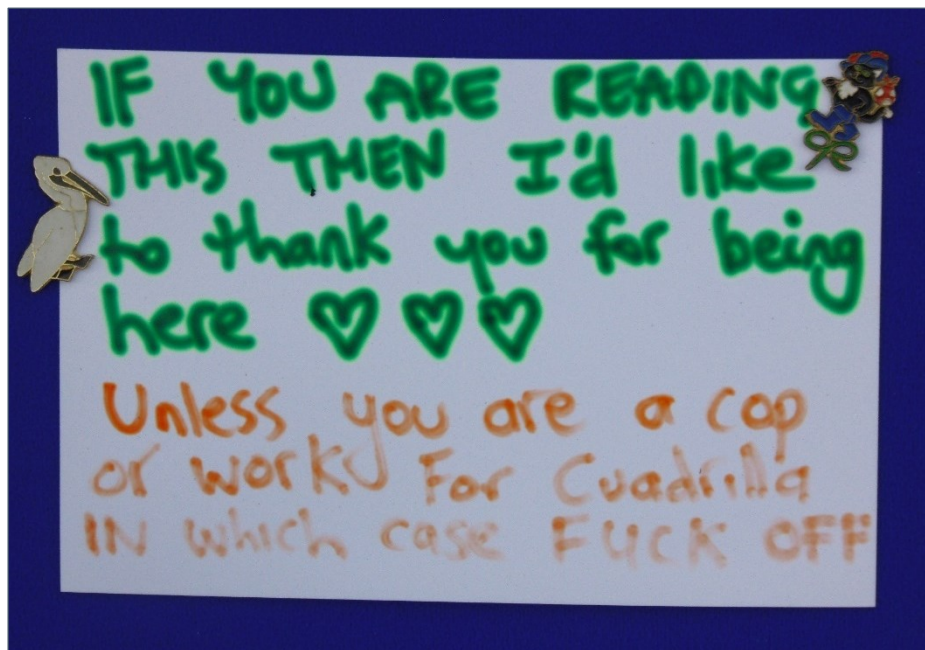 IF YOU ARE READING
THIS THEN I'd like
to thank you for being
here ♡ ♡ ♡
Unless you are a cop
or work For Cuadrilla
IN which case FUCK OFF